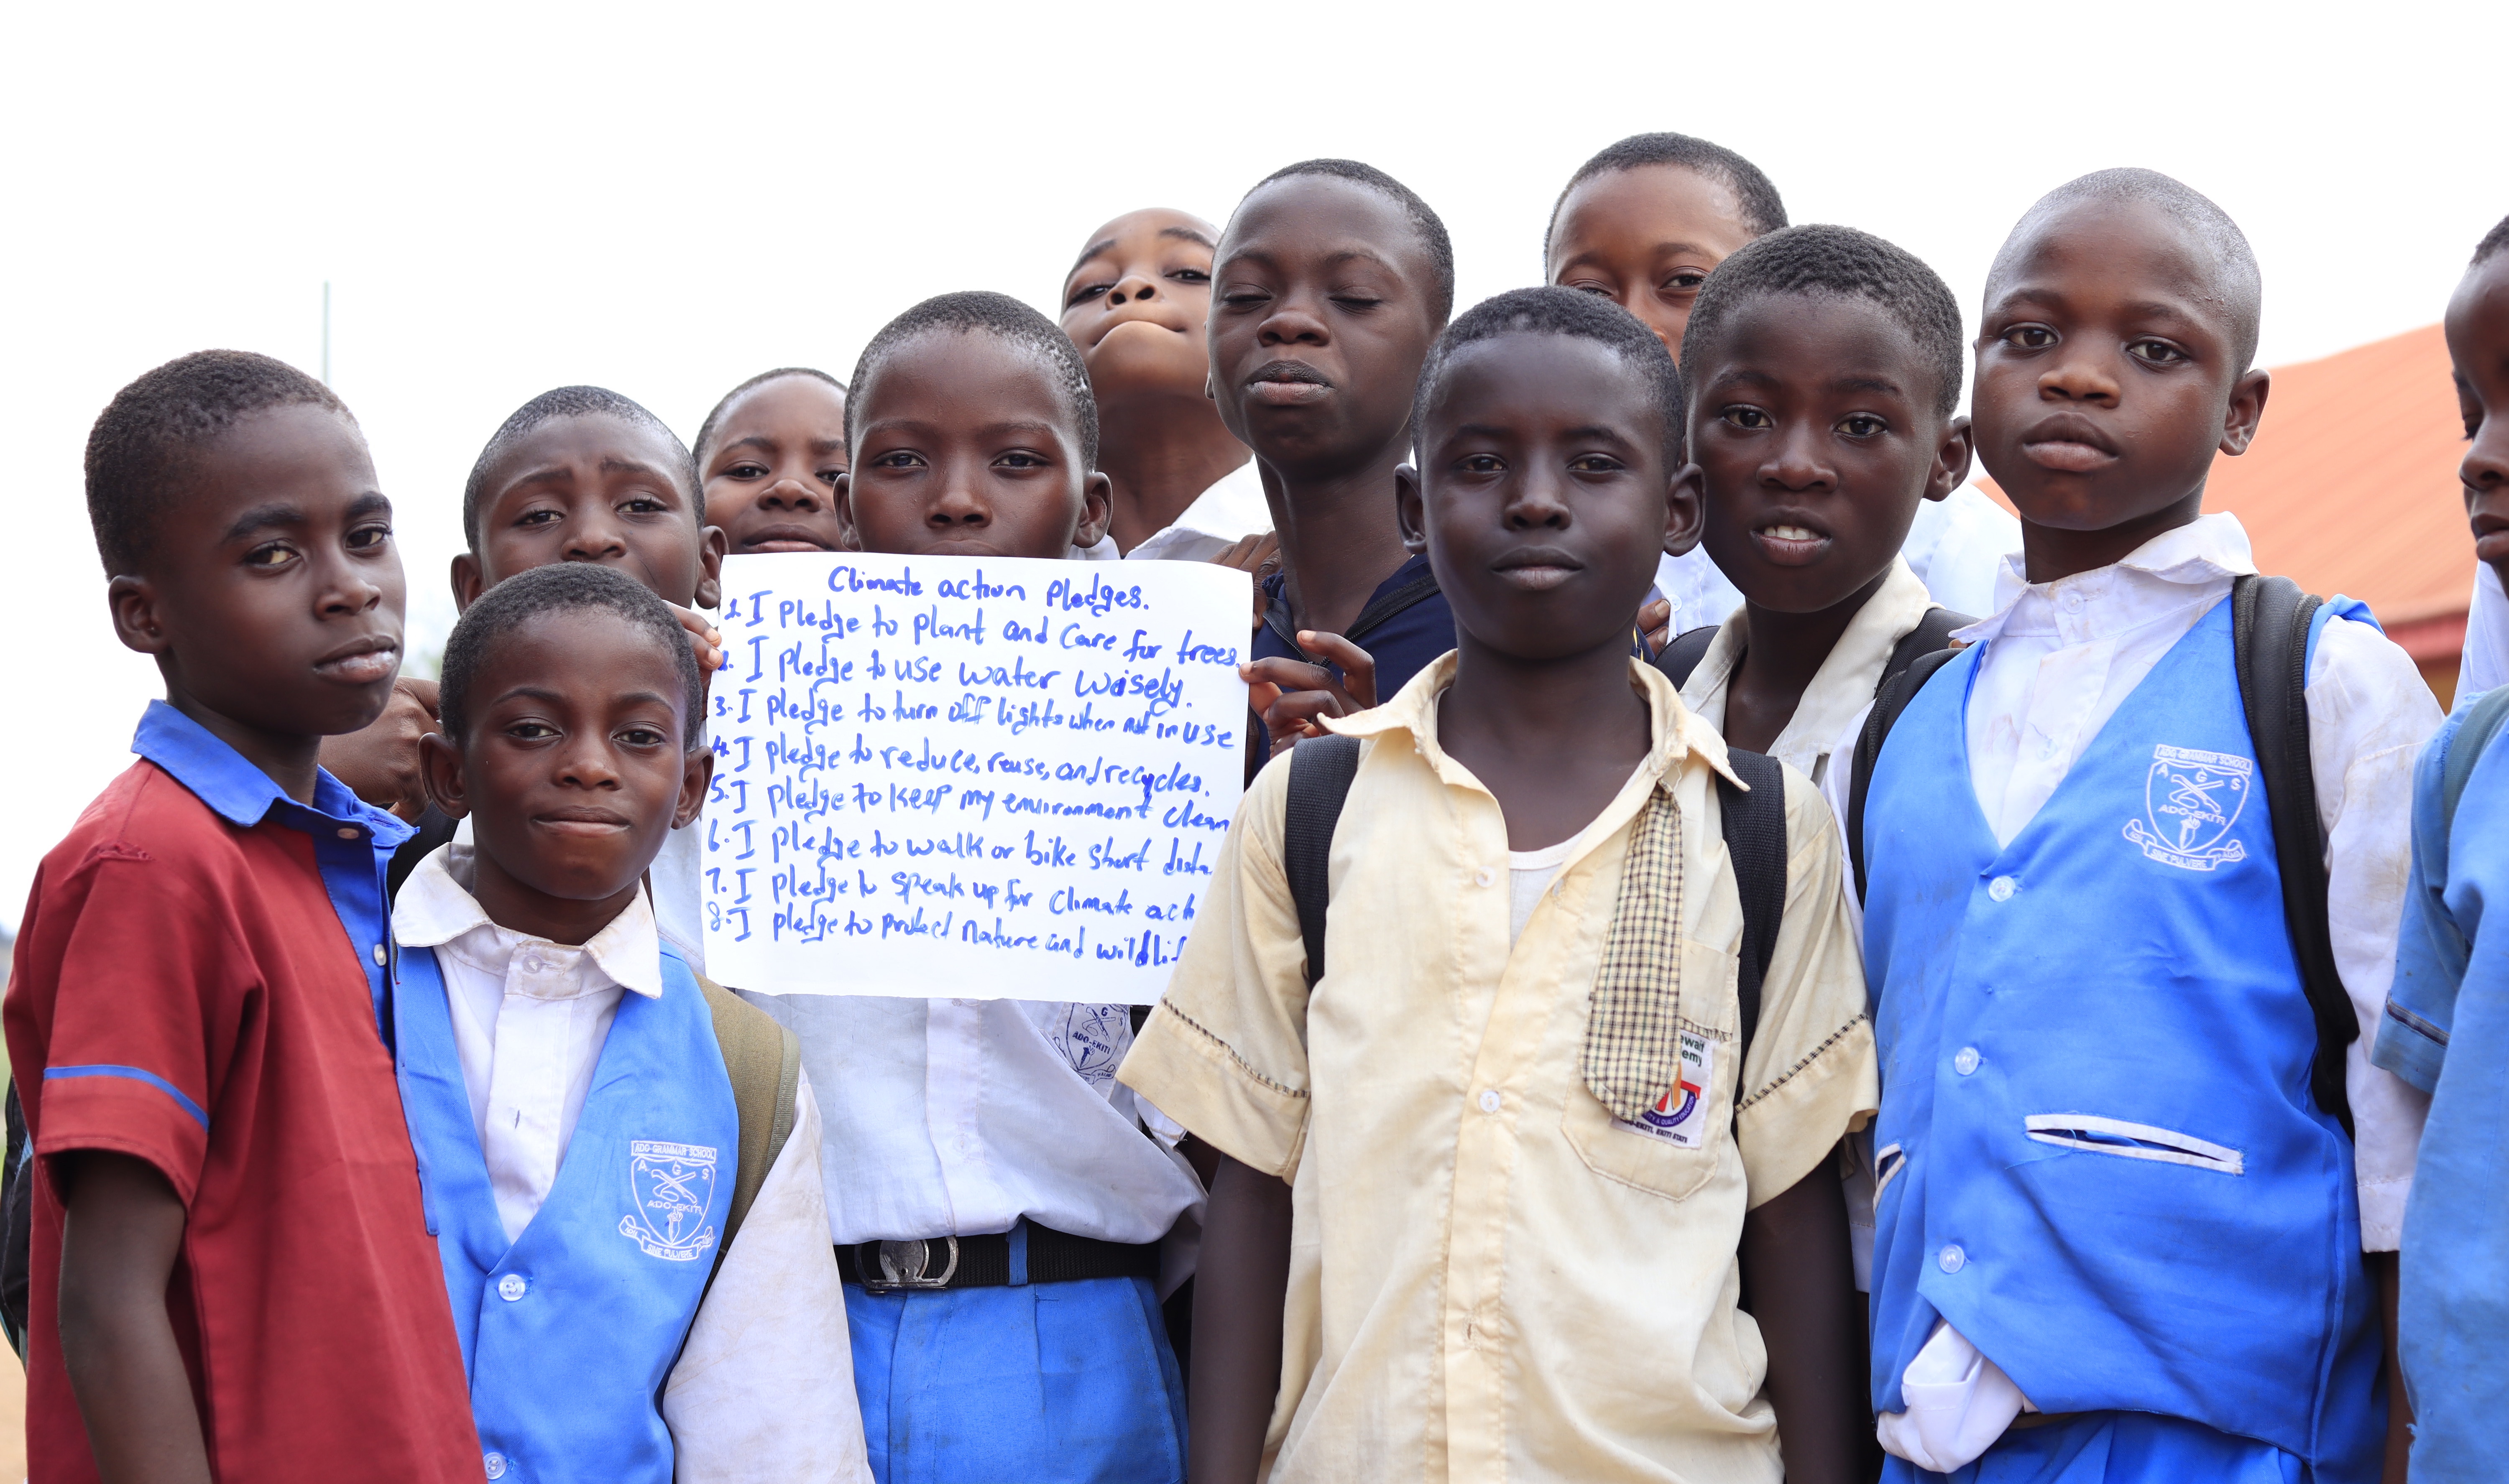 Climate action Pledges.
1. I pledge to plant and care for trees.
2. I pledge to use water waisely.
3. I pledge to turn off lights when not in use
4. I pledge to reduce, reuse, and recycles.
5. I pledge to keep my environment clean
6. I pledge to walk or bike short dista
7. I pledge to speak up for climate act
8. I pledge to protect nature and wildlif
ADO-GRAMMAR SCHOOL
A G S
ADO-EKITI
SINE PULVERE
ADO-EKITI
ADO-GRAMMAR SCHOOL
A G S
ADO EKITI
SINE PULVERE
ewait
emy
& QUALITY EDUCATION
ADO-EKITI, EKITI STATE